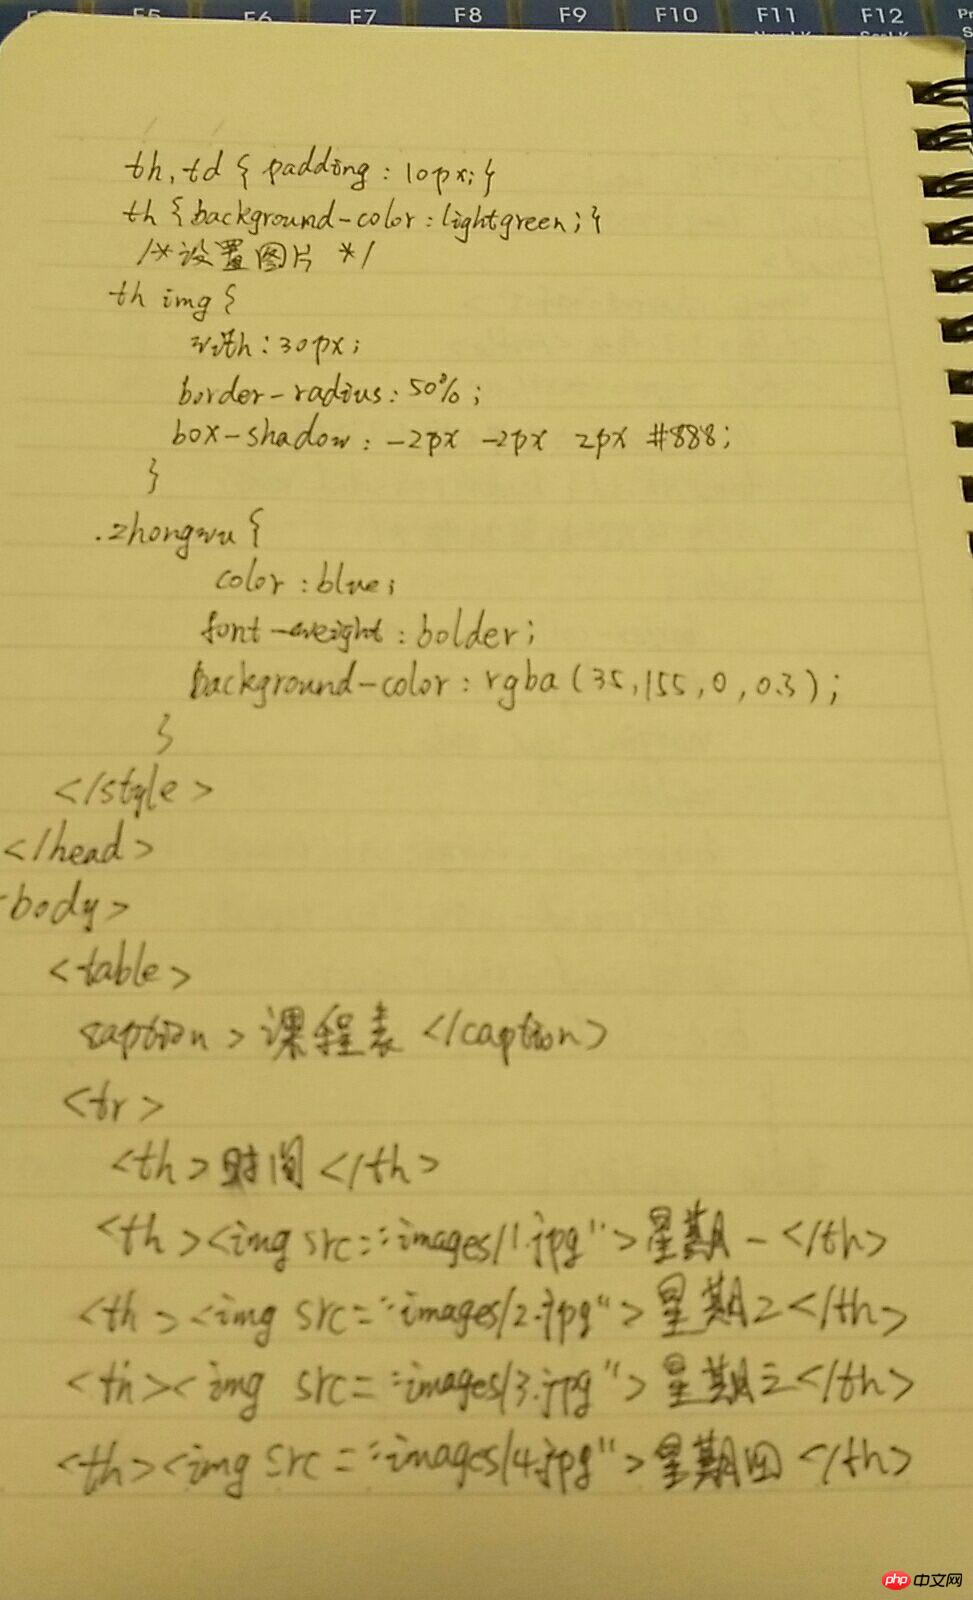 F5 F6 F7 F8 F9 F10 F11 F12
th, td { padding : 10px; }
th { background-color : lightgreen; }
/*设置图片 */
th img {
with : 30px;
border-radius : 50%;
box-shadow : -2px -2px 2px #888;
}
.zhongwu {
color : blue;
font-weight : bolder;
background-color : rgba (35,155,0,0.3);
}
</style>
</head>
body>
<table>
caption>课程表</caption>
<tr>
<th>时间</th>
<th><img src="images/1.jpg">星期一</th>
<th><img src="images/2.jpg">星期二</th>
<th><img src="images/3.jpg">星期三</th>
<th><img src="images/4.jpg">星期四</th>
php 中文网